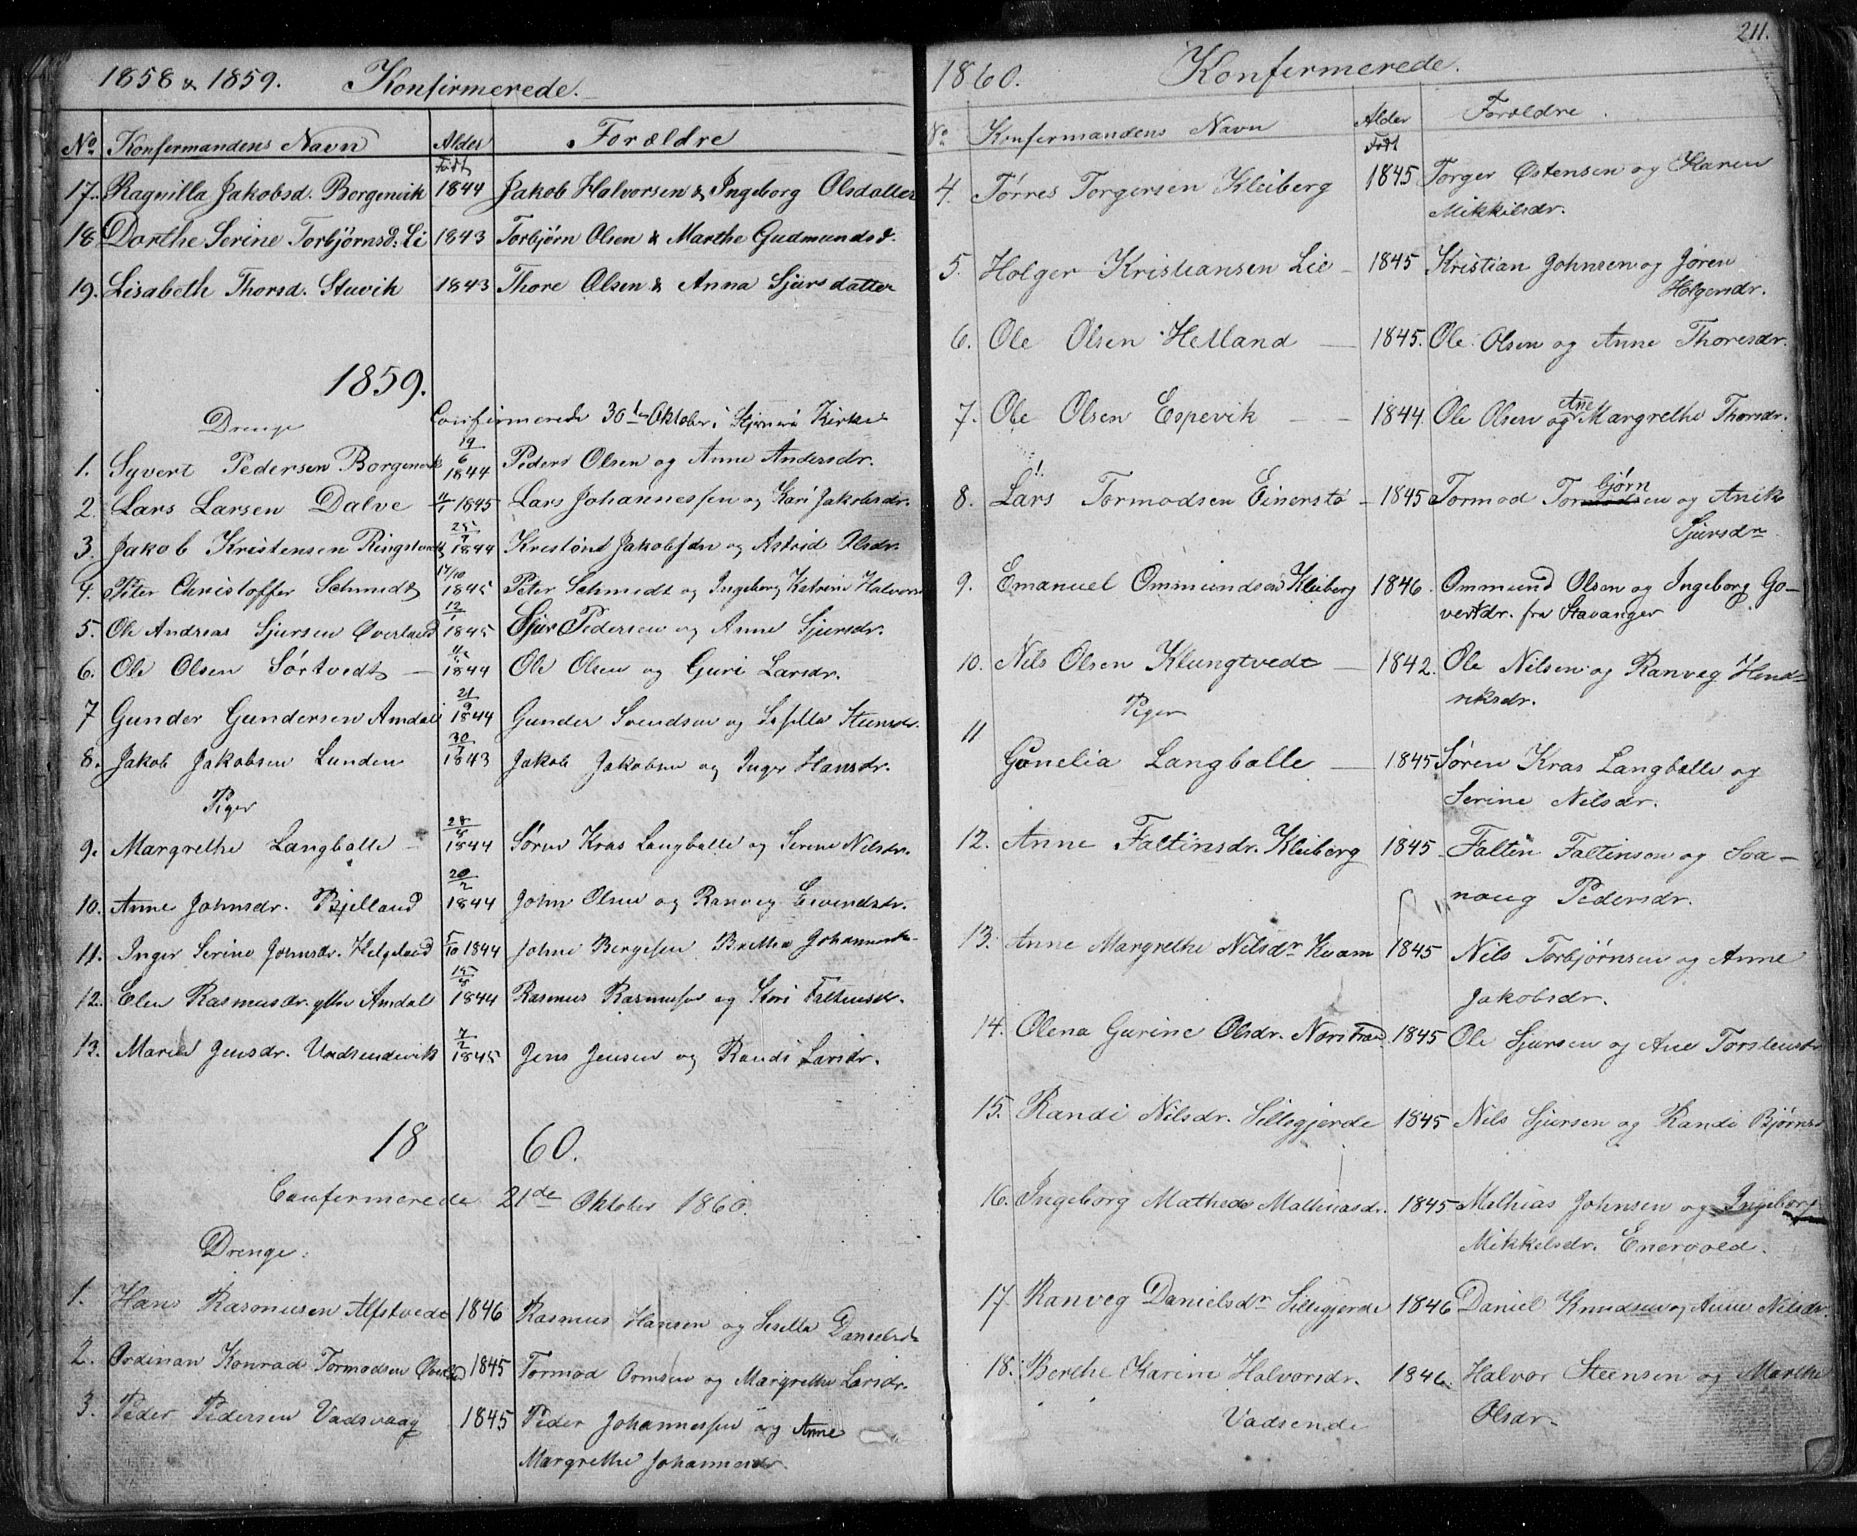 1858 & 1859. Konfirmerede.
No. Konfermandens Navn Alder Forældre
Født
17. Ragnilla Jakobsd. Borgenvik 1844 Jakob Halvorsen & Ingeborg Olsdatter
18 Dorthe Serine Torbjørnsd: Li 1843 Torbjørn Olsen & Marthe Gudmundsd.
19. Lisabeth Thorsd. Stuvik 1843 Thore Olsen & Anna Sjursdatter
1859.
Drenge Confirmerede 30te Oktober i Kirke
1. Syvert Pedersen Borgenvik 19/6 1844 Peder Olsen og Anne Andersdr.
2. Lars Larsen Dalve 1845 Lars Johannessen og Kari Jakobsdr.
3. Jakob Kristensen 1844 Jakobsen og Astrid Olsdr.
4. Peter Christoffer Schmidt 17/10 1845 Peter Schmidt og Ingeborg Katrine
5. Ole Andreas Sjursen Øverland 12/1 1845 Sjur Pedersen og Anne Sjursdr.
6. Ole Olsen Sørtvedt — 1844 Ole Olsen og Guri Larsdr.
7 Gunder Gundersen Amdal 21/9 1844 Gunder Svendsen og
8. Jakob Jakobsen Lunden 1843 Jakob Jakobsen og Inger Hansdr.
Piger
9. Margrethe Langballe 28/8 1844 Søren Kras Langballe og Serine Nilsdr.
10. Anne Johnsdr. Bjelland 20/2 1844 John Olsen og Ranveg
11. Inger Serine Johnsdr. Helgeland 5/10 1844 Johne
12. Elen Rasmusdr. Amdal 1844 Rasmus Rasmussen og
13. Jensdr. Vadsendevik 7/2 1845 Jens Jensen og Randi Larsdr.
18 60.
Confermerede 21de Oktober 1860.
Drenge:
1. Hans Rasmusen Alfstvedt 1846 Rasmus Hansen og Sisella
2. Ordinan Konrad Tormodsen 1845 Tormod Ormsen og Margrethe Larsdr.
3. Peder Pedersen Vadsvaag 1845 Peder Johannessen og Anne
Margrethe
211.
1860. Konfirmerede.
No. Konfermandens Navn Alder Forældre.
Født
4. Tørres Torgersen Kleiberg 1845 Torger Østensen og Karen
Mikkilsdr.
5. Holger Kristiansen Lie — 1845 Kristian Johnsen og Jøren
Holgersdr.
6. Ole Olsen Helland — 1845. Ole Olsen og Anne Thoresdr.
7. Ole Olsen Espevik — 1844 Ole Olsen og Ane Margrethe Thorsdr.
8. Lars Tormodsen Einerstø — 1845 Tormod Torbjørnsen og Anik
Sjursdr
9. Emanuel Ommundsen Kleiberg 1846. Ommund Olsen og Ingeborg Go-
vertdr. fra Stavanger
10. Nils Olsen Klungtvedt — 1842. Ole Nilsen og Ranveg Hend-
riksdr.
Piger
11
Langballe — 1845 Søren Kras Langballe og
Serine Nilsdr.
12. Anne Faltinsdr. Kleiberg 1845 Faltin Faltinsen og Sva-
naug Pedersdr.
13. Anne Margrethe Nilsdr Kvam 1845 Nils Torbjørnsen og Anne
Jakobsdr.
14. Olena Gurine Olsdr. 1845 Ole Sjursen og Ane Torstensdr
15. Randi Nilsdr. Sillegjerde 1845 Nils Sjursen og Randi
16. Ingeborg Mathiasdr. 1845 Mathias Johnsen og Ingeborg
Mikkelsdr. Enervold.
17. Ranveg Danielsdr Sillegjerde 1846 Daniel Knudsen og Anne Nilsdr.
18. Berthe Karine Halvorsdr. 1846. Halvor Steensen og Marthe
Vadsende Olsdr.